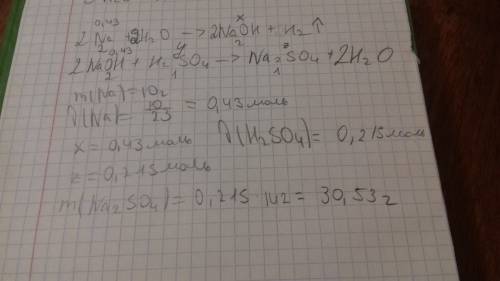 0,43 x
2Na + 2H2O —> 2NaOH + H2 ↑
2 2
0,43 y z
2NaOH + H2SO4 —> Na2SO4 + 2H2O
2 1 1
m(Na) = 10г
ν(Na) = 10/23 = 0,43 моль
x = 0,43 моль ν(H2SO4) = 0,215 моль
z = 0,215 моль
m(Na2SO4) = 0,215 · 142 = 30,53 г